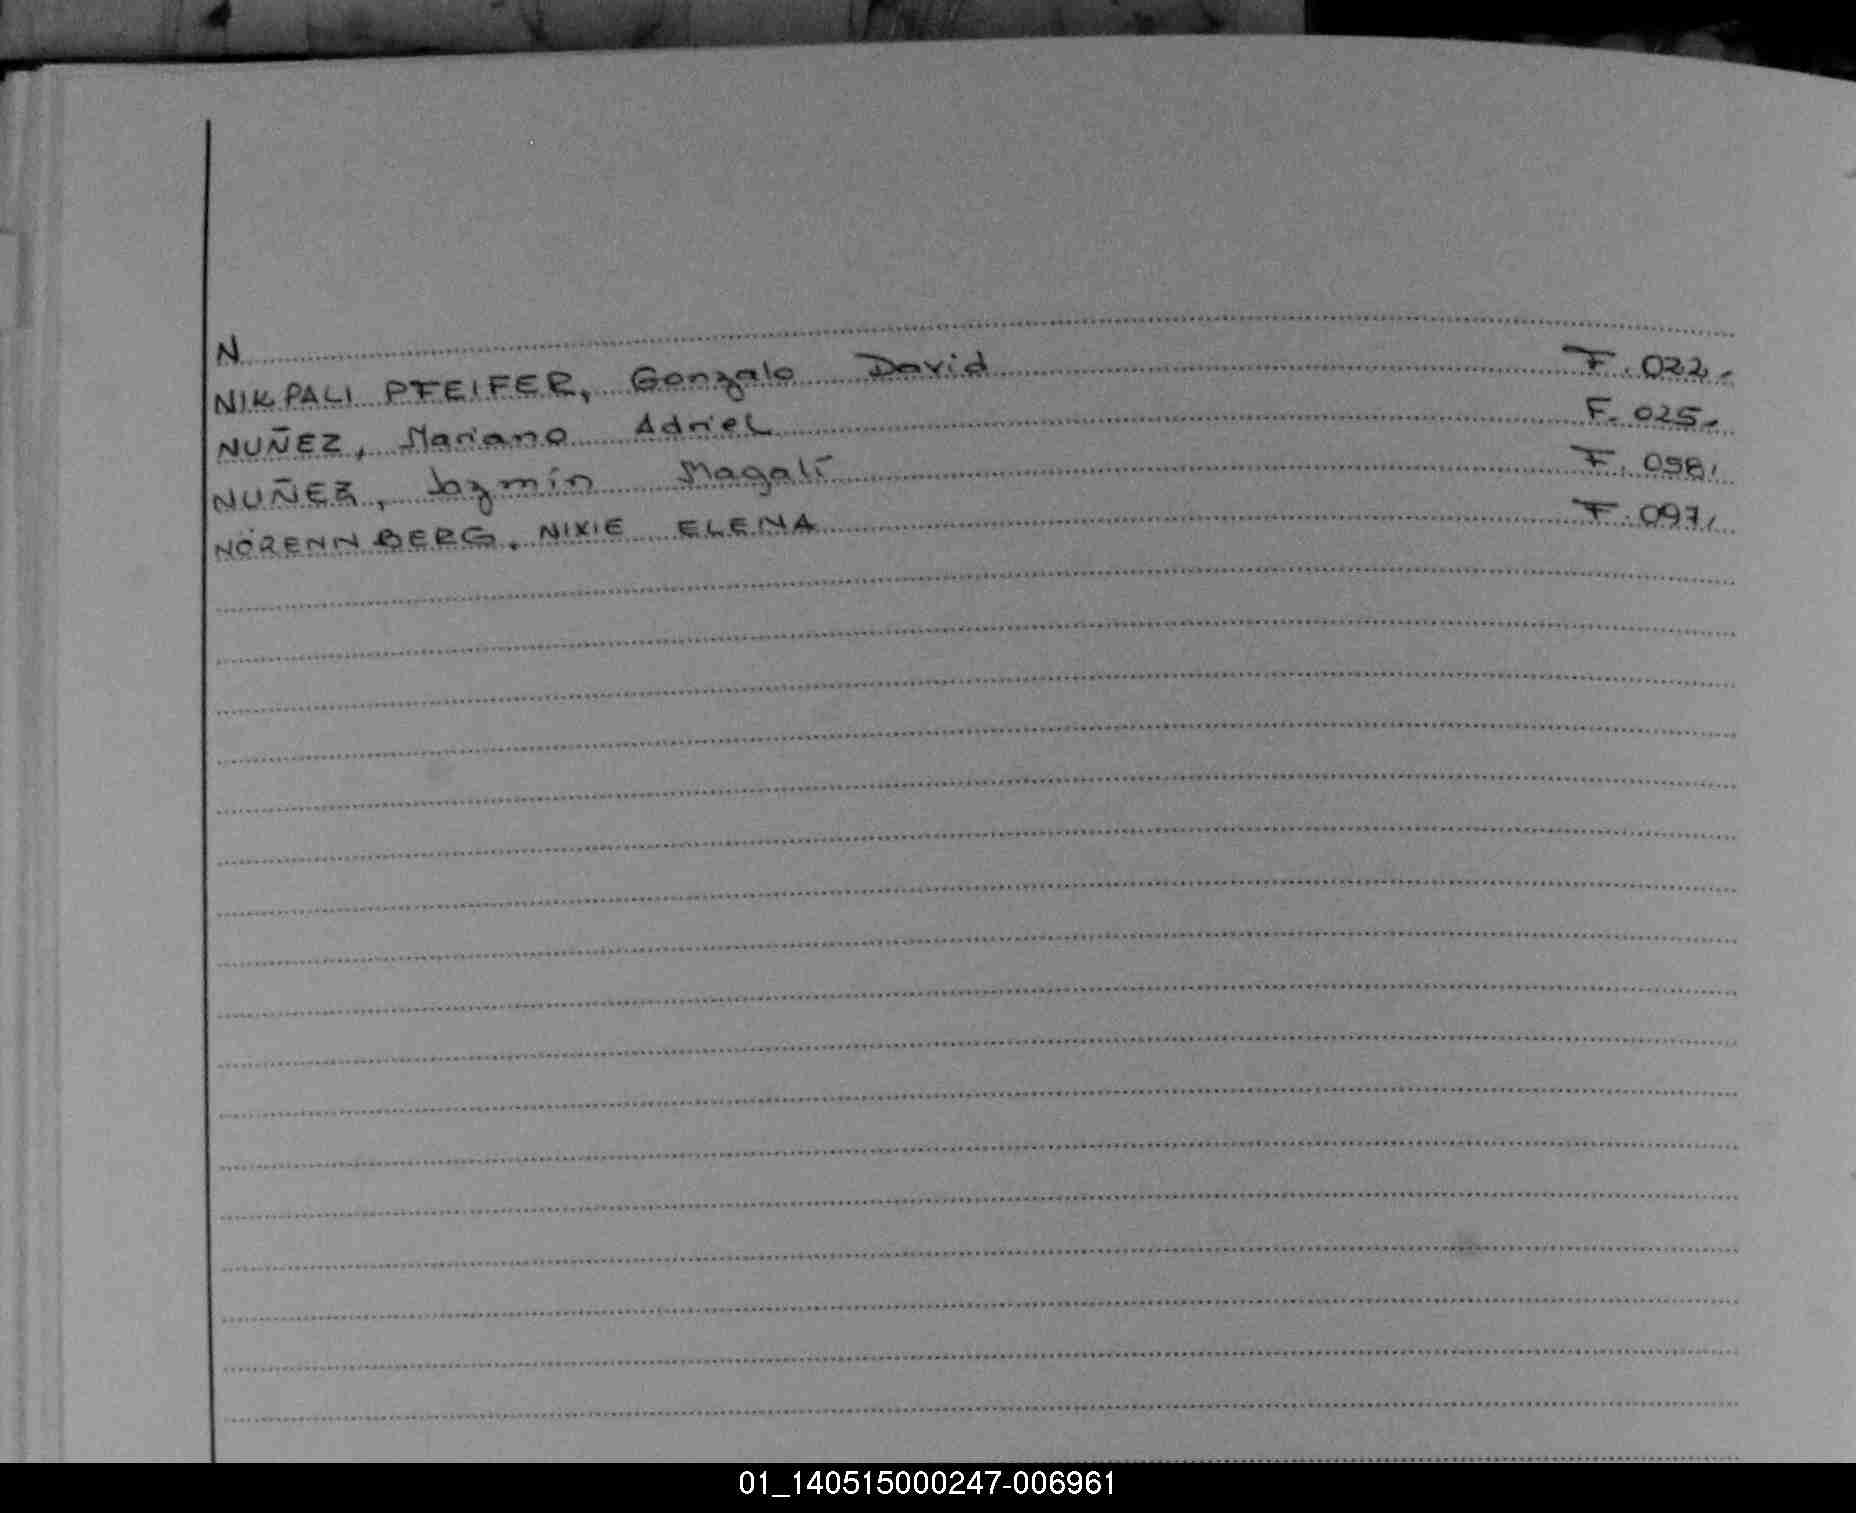 N
NIKPALI PFEIFER, Gonzalo David F. 022.-
NUÑEZ, Mariano Adriel F. 025.-
NUÑEZ, Jazmín Magalí F. 058.
NÖRENNBERG, NIXIE ELENA F. 097.
01_140515000247-006961